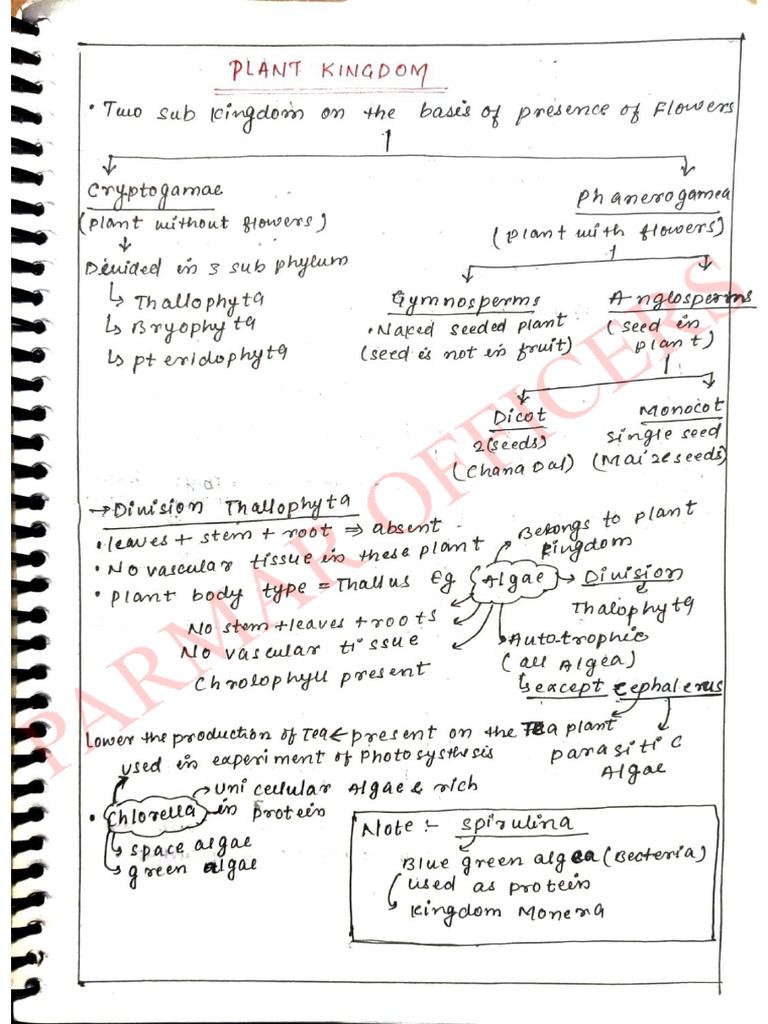 PLANT KINGDOM
• Two sub kingdom on the basis of presence of Flowers
Cryptogamae
(plant without flowers)
Divided in 3 sub phylum
↳ Thallophyta
↳ Bryophyta
↳ pteridophyta
Phanerogamea
(plant with flowers)
Gymnosperms
• Naked seeded plant
(seed is not in fruit)
Anglosperms
(seed in
plant)
Dicot
2(seeds)
(Chana Dal)
Monocot
single seed
(Maize seeds)
→ Division Thallophyta
• leaves + stem + root ⇒ absent
• No vascular tissue in these plant
• plant body type = Thallus Eg
Algae
Belongs to plant
kingdom
Division
Thalophyta
No stem+leaves+roots
No vascular tissue
Chrolophyll present
Autotrophic
(all Algea)
↳ except cephalerus
Lower the production of Tea ← present on the Tea plant
parasitic
Algae
used in experiment of Photosysthesis
• Chlorella
uni cellular Algae & rich
in protein
space algae
green algae
Note :- spirulina
Blue green algea (Bacteria)
used as protein
kingdom Monera
PARMAR OFFICERS